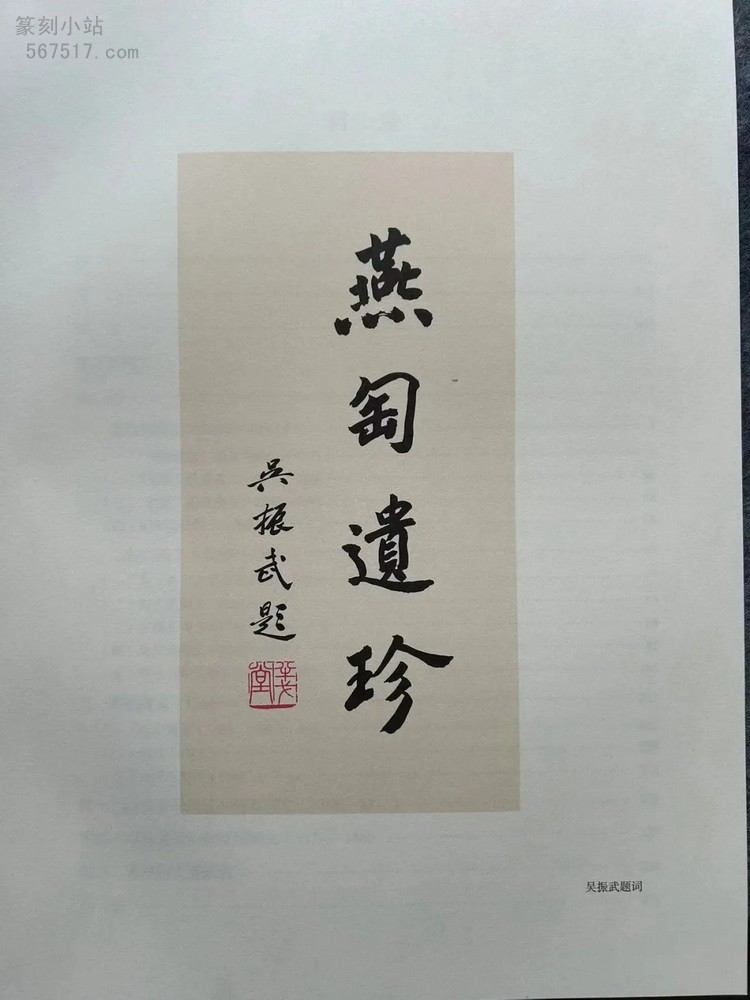 篆刻小站
567517.com
燕匋遺珍
吳振武題
吴振武题词